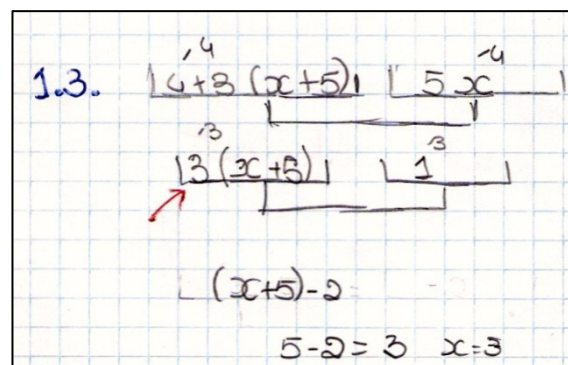 1.3. 4+3 (x+5) 5x
-4 -4
3(x+5) 1
-3 -3
(x+5)-2
5-2=3 x=3